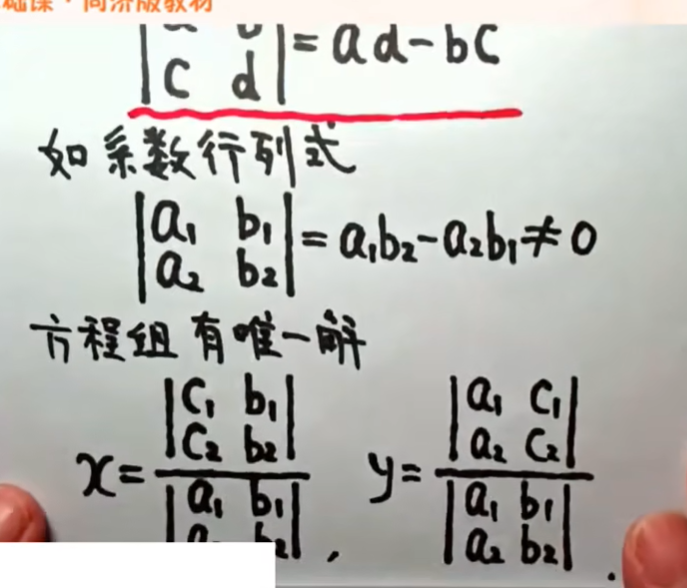 础课·同济版教材
|a b; c d| = ad-bc
如系数行列式
|a₁ b₁; a₂ b₂| = a₁b₂-a₂b₁≠0
方程组有唯一解
x = |c₁ b₁; c₂ b₂| / |a₁ b₁; a₂ b₂| , y = |a₁ c₁; a₂ c₂| / |a₁ b₁; a₂ b₂| .